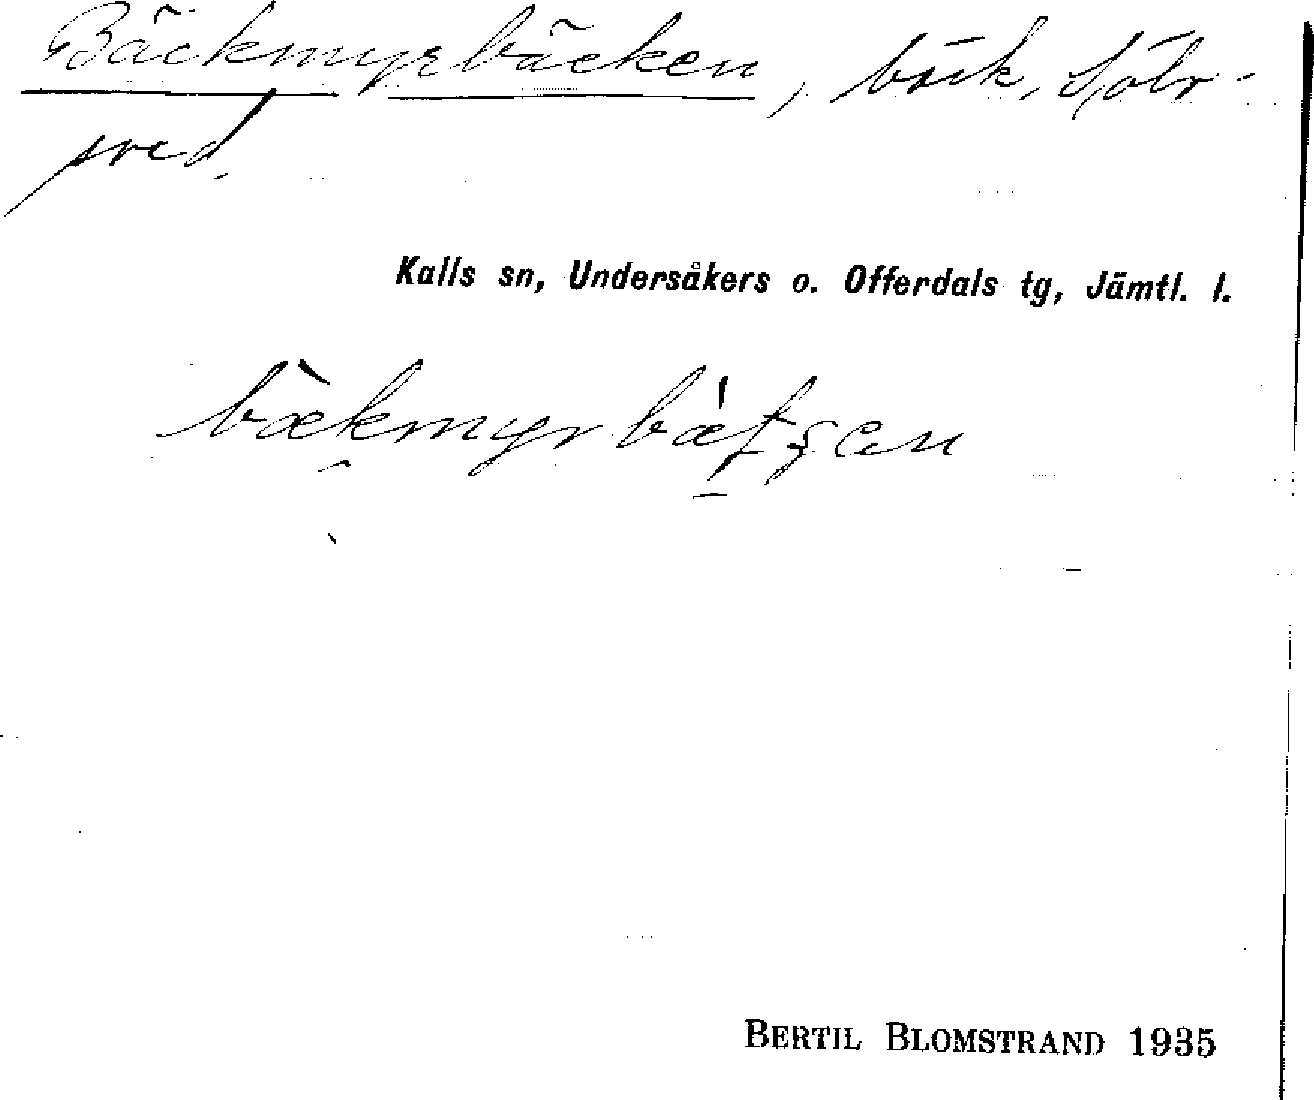 Bäckmyrbäcken, bäck, Sölv-
sved.
Kalls sn, Undersåkers o. Offerdals tg, Jämtl. l.
BERTIL BLOMSTRAND 1935